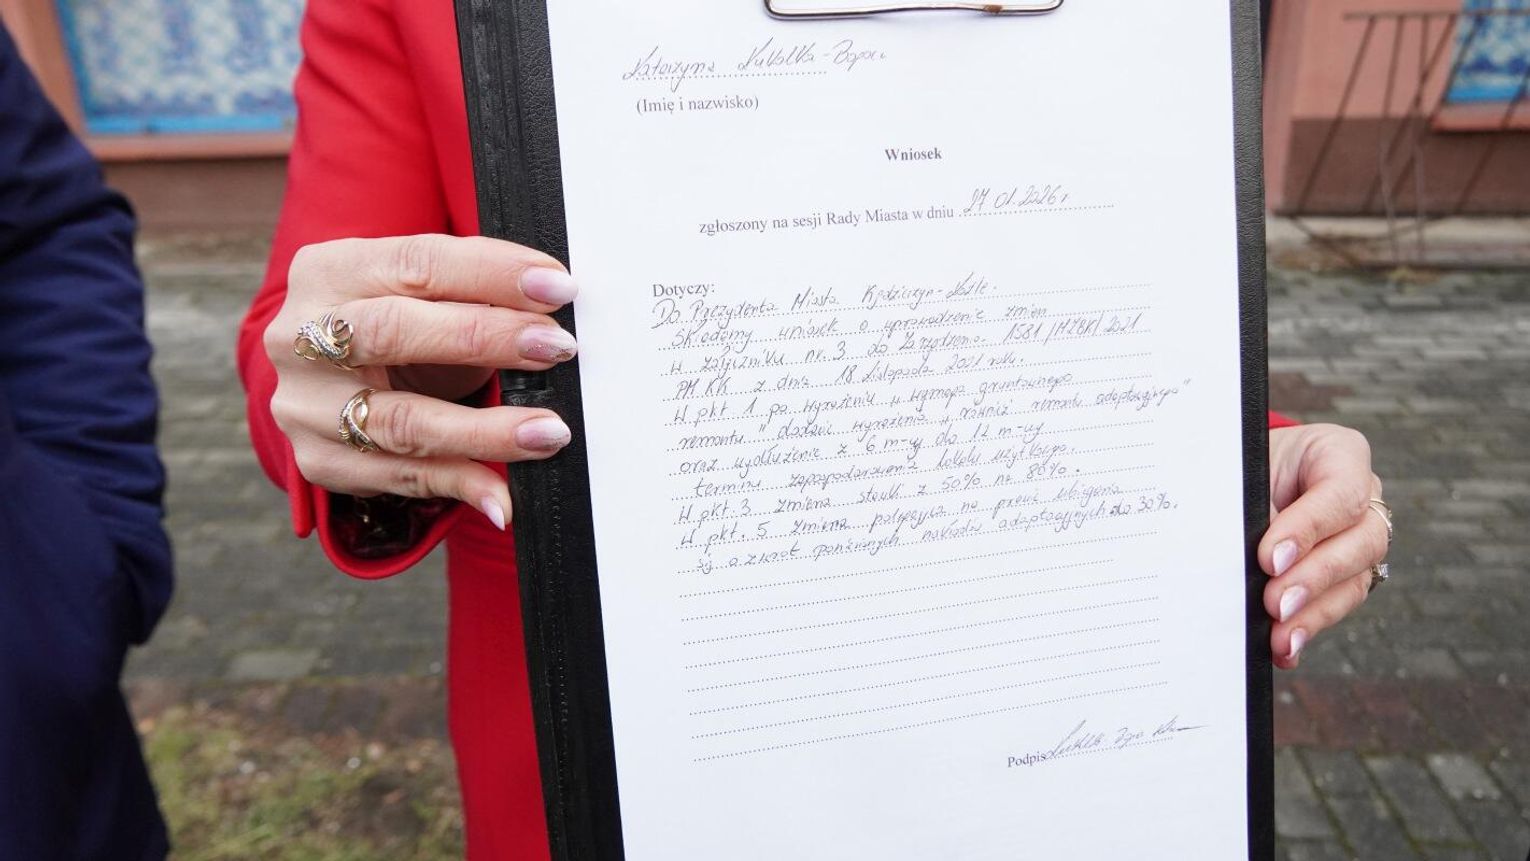 Katarzyna Kukolka-Bogocz
(Imię i nazwisko)
Wniosek
zgłoszony na sesji Rady Miasta w dniu 27.01.2026 r
Dotyczy:
Do Prezydenta Miasta Kędzierzyn-Koźle.
Składamy wniosek o wprowadzenie zmian
w załączniku nr. 3 do Zarządzenia 1581/MZBK/2021
PM KK z dnia 18 listopada 2021 roku.
W pkt. 1 po wyrażeniu „ wymaga gruntownego
remontu " dodanie wyrażenia „ również remontu adaptacyjnego "
oraz wydłużenie z 6 m-cy do 12 m-cy
terminu zagospodarowania lokalu użytkowego.
W pkt. 3 zmiana stawki z 50% na 80%.
W pkt. 5 zmiana polegająca na prawie ubiegania
się o zwrot poniesionych nakładów adaptacyjnych do 30%.
Podpis